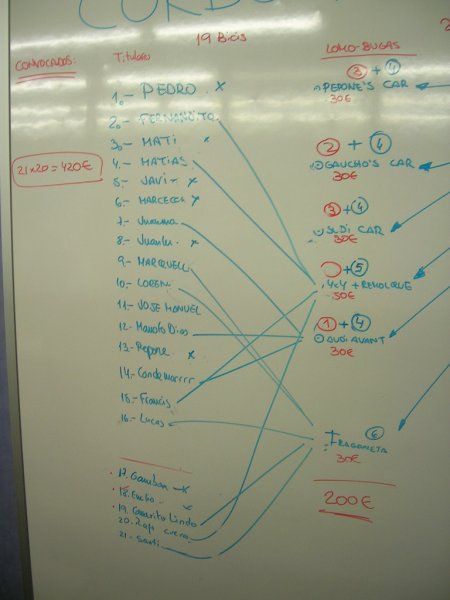 19 Bicis
CONVOCADOS:
Titulares
LOMO-BUGAS
1.- PEDRO x
2.- FERNANDITO
3.- MATI x
4.- MATIAS
5.- JAVI x
6.- MARCECA x
7.- Juanma
8.- Juanlu x
9.- MARQUELL
10.- LOREN
11.- JOSE MANUEL
12.- Manolo Dios
13.- Pepone x
14.- Condemorrrr
15.- Francis
16.- Lucas
17. Gambon x
18. Emilio
19. Gavrito Lindo
20. Zapa
21.- Santi
21x20 = 420€
3 + 4
PEPONE'S CAR
30€
2 + 4
GAUCHO'S CAR
30€
3 + 4
SUDI CAR
30€
+ 5
4x4 + REMOLQUE
50€
1 + 4
AUDI AVANT
30€
6
FRAGONETA
30€
200€